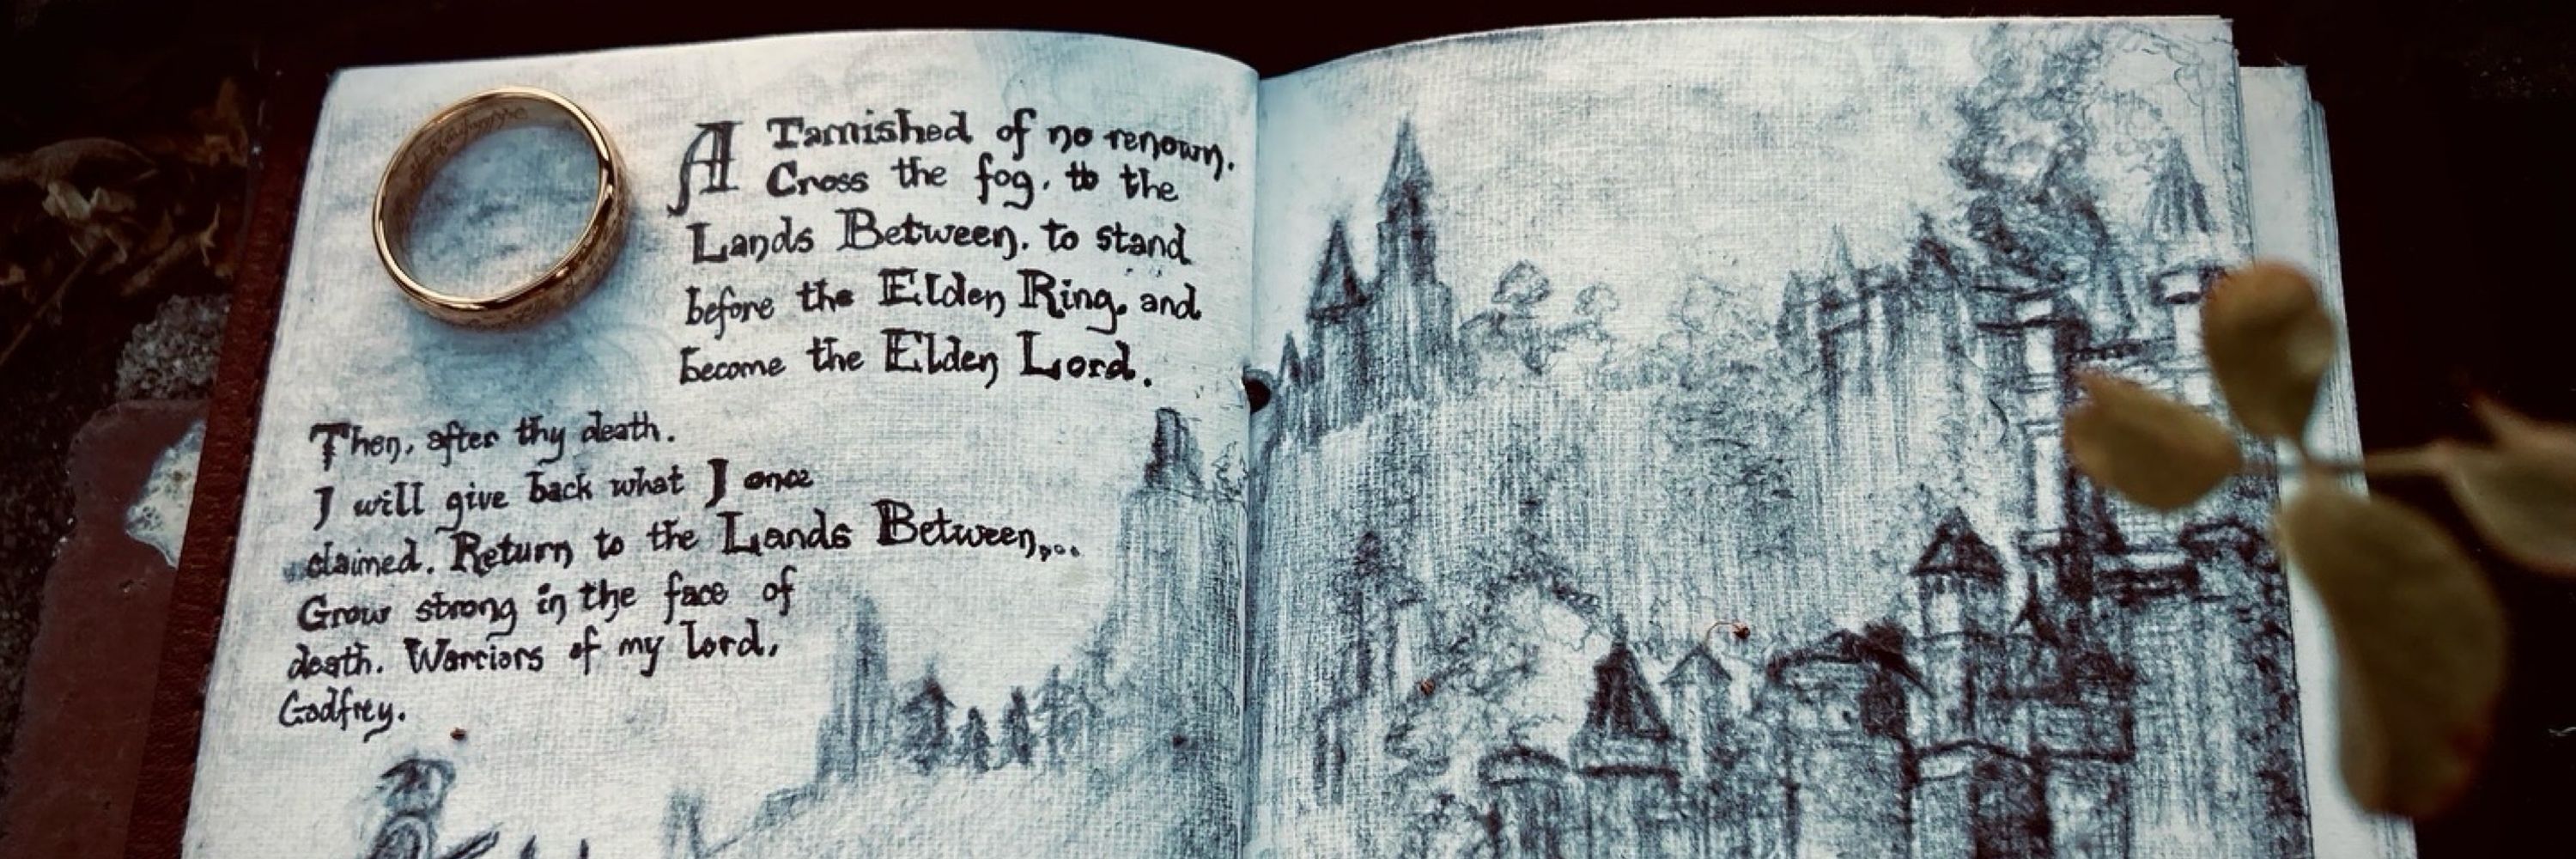 A Tarnished of no renown.
Cross the fog, to the
Lands Between, to stand
before the Elden Ring, and
become the Elden Lord.
Then, after thy death.
I will give back what I once
claimed. Return to the Lands Between,...
Grow strong in the face of
death. Warriors of my lord,
Godfrey.